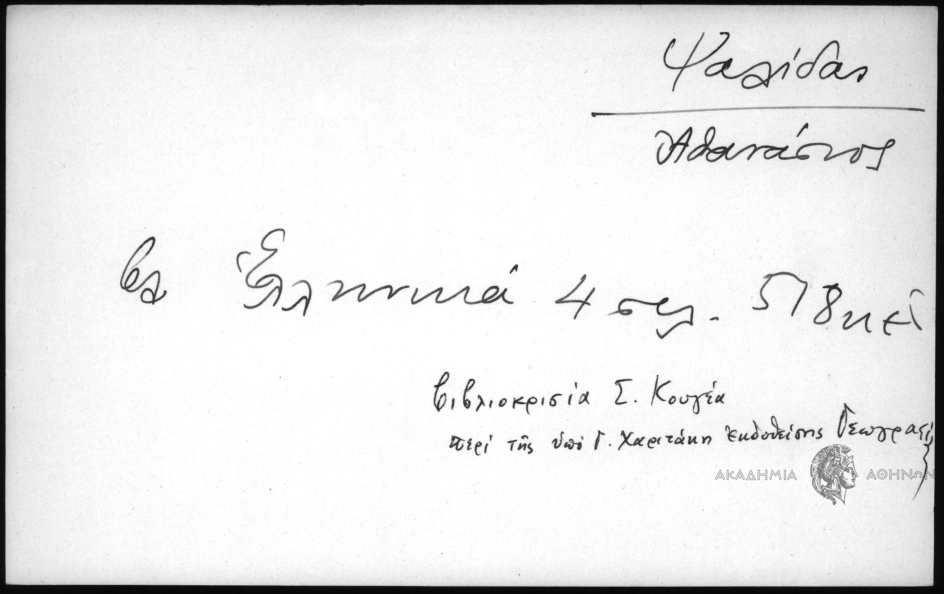 Ψαλίδας
Ἀθανάσιος
βλ Ἑλληνικά 4 σελ. 518 κ ἑ
βιβλιοκρισία Σ. Κουγέα
περί τῆς ὑπό Γ. Χαριτάκη ἐκδοθείσης Γεωγραφί
ΑΚΑΔΗΜΙΑ ΑΘΗΝΩΝ